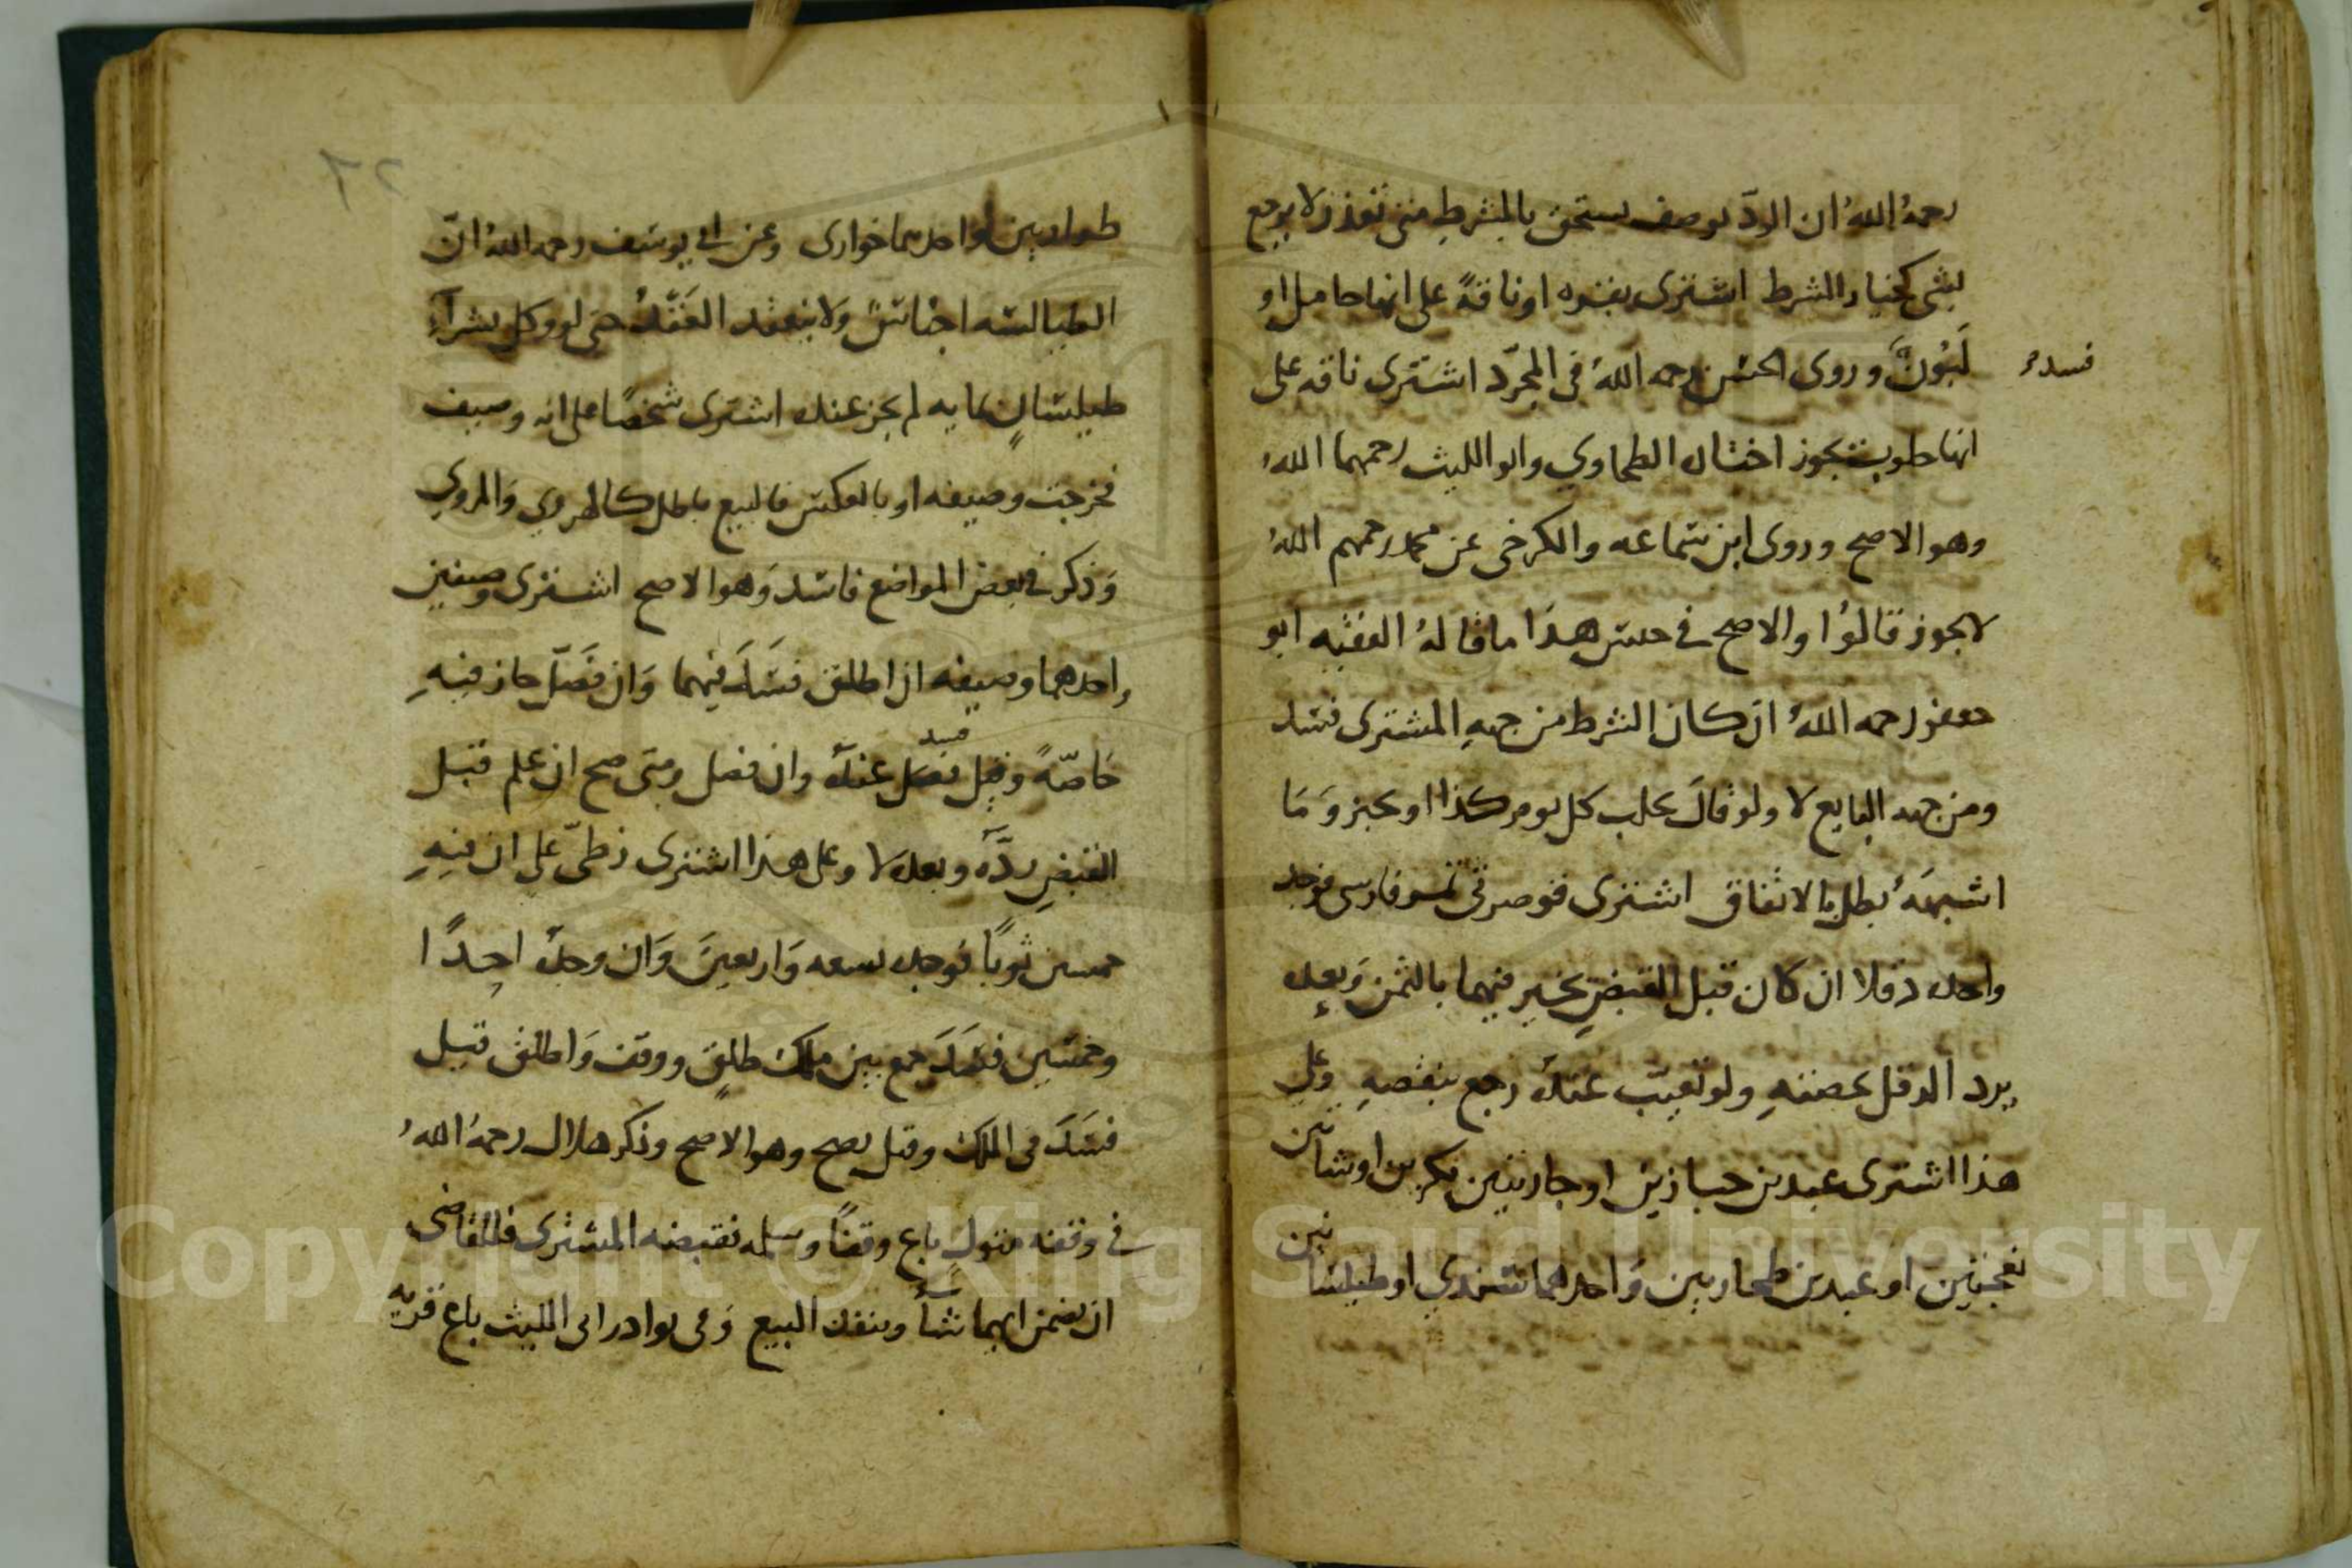 رحمهُ اللهُ ان الردّ بوصف يستحق بالمشرط متى تعذر لا يرجع
بشى كخيار الشرط اشترى بقره او ناقةً على انها حامل او
لَبُونٌ وروى الحسن رحمه اللهُ فى المجرّد اشترى ناقه على
فسد
انها حلوب يجوز اختاره الطحاوي وابو الليث رحمهما اللهُ
وهو الاصح وروى ابن سماعه والكرخى عن محمد رحمهم اللهُ
لا يجوز قالوُا والاصح فى جنس هذا ما قالهُ الفقيه ابو
جعفر رحمه اللهُ ان كان الشرط من جهةِ المشترى فسد
ومن جهه البايع لا ولو قالَ يحلب كل يوم كذا او يخبز وَمَا
اشبههُ بطل بالاتفاق اشترى قوصرتى تمر فارسى فوجد
واحده دقلا ان كان قبل القبضِ يخير فيهما بالثمن وَبعده
يرد الدقل بحصتهِ ولو تعيّب عندهُ رجع بنقصهِ وعلى
هذا اشترى عبدين خبازين او جاريتين بكرين او شاتين
نعجتين او عبدين طحاريين وَاحدهما سندي او طيلسانين
طبراديين او احدهما خوارى وعن ابى يوسف رحمه اللهُ انّ
الطيالسه اجْنَاسٌ وَلا ينعقد العَقْدُ حتى لو وكل بشرآءِ
طيلسانٍ بمايه لم يجز عنده اشترى شخصًا على انه وصيف
فخرجت وصيفه او بالعكس فالبيع باطل كالهروي وَالمروي
وَذكر فى بعض المواضع فاسد وَهوا الاصح اشترى وصيفين
واحدهما وصيفه ان اطلق فسَدَ فيهما وَان فَصّل جاز فيهِ
خاصّهً وقيل فصَل عندهُ وان فصل ومتى صح ان علم قبل
فسد
القبضِ ردّهُ وبعده لا وعلى هذا اشترى زطىّ على ان فيهِ
خمسين ثوبًا فوجده تسعه وَاربعينَ وَان وجدهُ احِدًا
وخمسين فسَدَ جمع بين ملك طلقٍ ووقف وَاطلق قيل
فسَدَ فى الملك وقيل يصح وهو الاصح وذكر هلال رحمهُ اللهُ
فى وقفه متولٍ باع وقفًا وسلمه فقبضه المشترى فللقاضى
ان يضمن ايهما شأ وينفذ البيع وَفى نوادر ابى الليث باع قريه